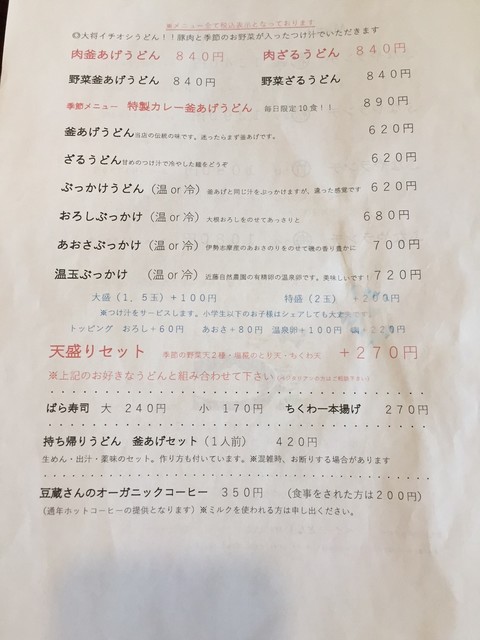 ※メニュー全て税込表示となっております
◎大将イチオシうどん！！豚肉と季節のお野菜が入ったつけ汁でいただきます
肉釜あげうどん 840円 肉ざるうどん 840円
野菜釜あげうどん 840円 野菜ざるうどん 840円
季節メニュー 特製カレー釜あげうどん 毎日限定10食！！ 890円
釜あげうどん当店の伝統の味です。迷ったらまず釜あげです。 620円
ざるうどん甘めのつけ汁で冷やした麺をどうぞ 620円
ぶっかけうどん（温or冷）釜あげと同じ汁をぶっかけますが、違った感覚です 620円
おろしぶっかけ（温or冷）大根おろしをのせてあっさりと 680円
あおさぶっかけ（温or冷）伊勢志摩産のあおさのりをのせて磯の香り豊かに 700円
温玉ぶっかけ （温or冷）近藤自然農園の有精卵の温泉卵です。美味しいです！ 720円
大盛（1，5玉）＋100円 特盛（2玉）＋200円
※つけ汁をサービスします。小学生以下のお子様はシェアしても大丈夫です
トッピング おろし＋60円 あおさ＋80円 温泉卵＋100円 ＋220円
天盛りセット 季節の野菜天2種・塩糀のとり天・ちくわ天 ＋270円
※上記のお好きなうどんと組み合わせて下さい
ばら寿司 大 240円 小 170円 ちくわ一本揚げ 270円
持ち帰りうどん 釜あげセット（1人前） 420円
生めん・出汁・薬味のセット。作り方も付いています。※混雑時、お断りする場合があります
豆蔵さんのオーガニックコーヒー 350円 （食事をされた方は200円）
（通年ホットコーヒーの提供となります）※ミルクを使われる方は申し出ください。